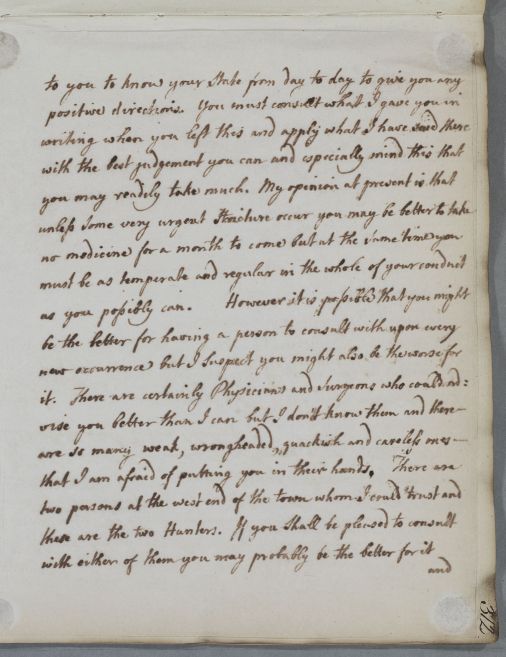 to you to know your State from day to day to give you any
positive directions. You must consult what I gave you in
writing when you left this and apply what I have said there
with the best judgement you can and especially mind this that
you may readily take much. My opinion at present is that
unless some very urgent Stricture occur you may be better to take
no medicine for a month to come but at the same time you
must be as temperate and regular in the whole of your conduct
as you possibly can. However it is possible that you might
be the better for having a person to consult with upon every
new occurrence but I suspect you might also be the worse for
it. There are certainly Physicians and Surgeons who could ad=
vise you better than I can but I don't know them and there
are so many weak, wrongheaded, quackish and careless ones
that I am afraid of putting you in their hands. There are
two persons at the west end of the town whom I could trust and
these are the two Hunters. If you shall be pleased to consult
with either of them you may probably be the better for it
and
312